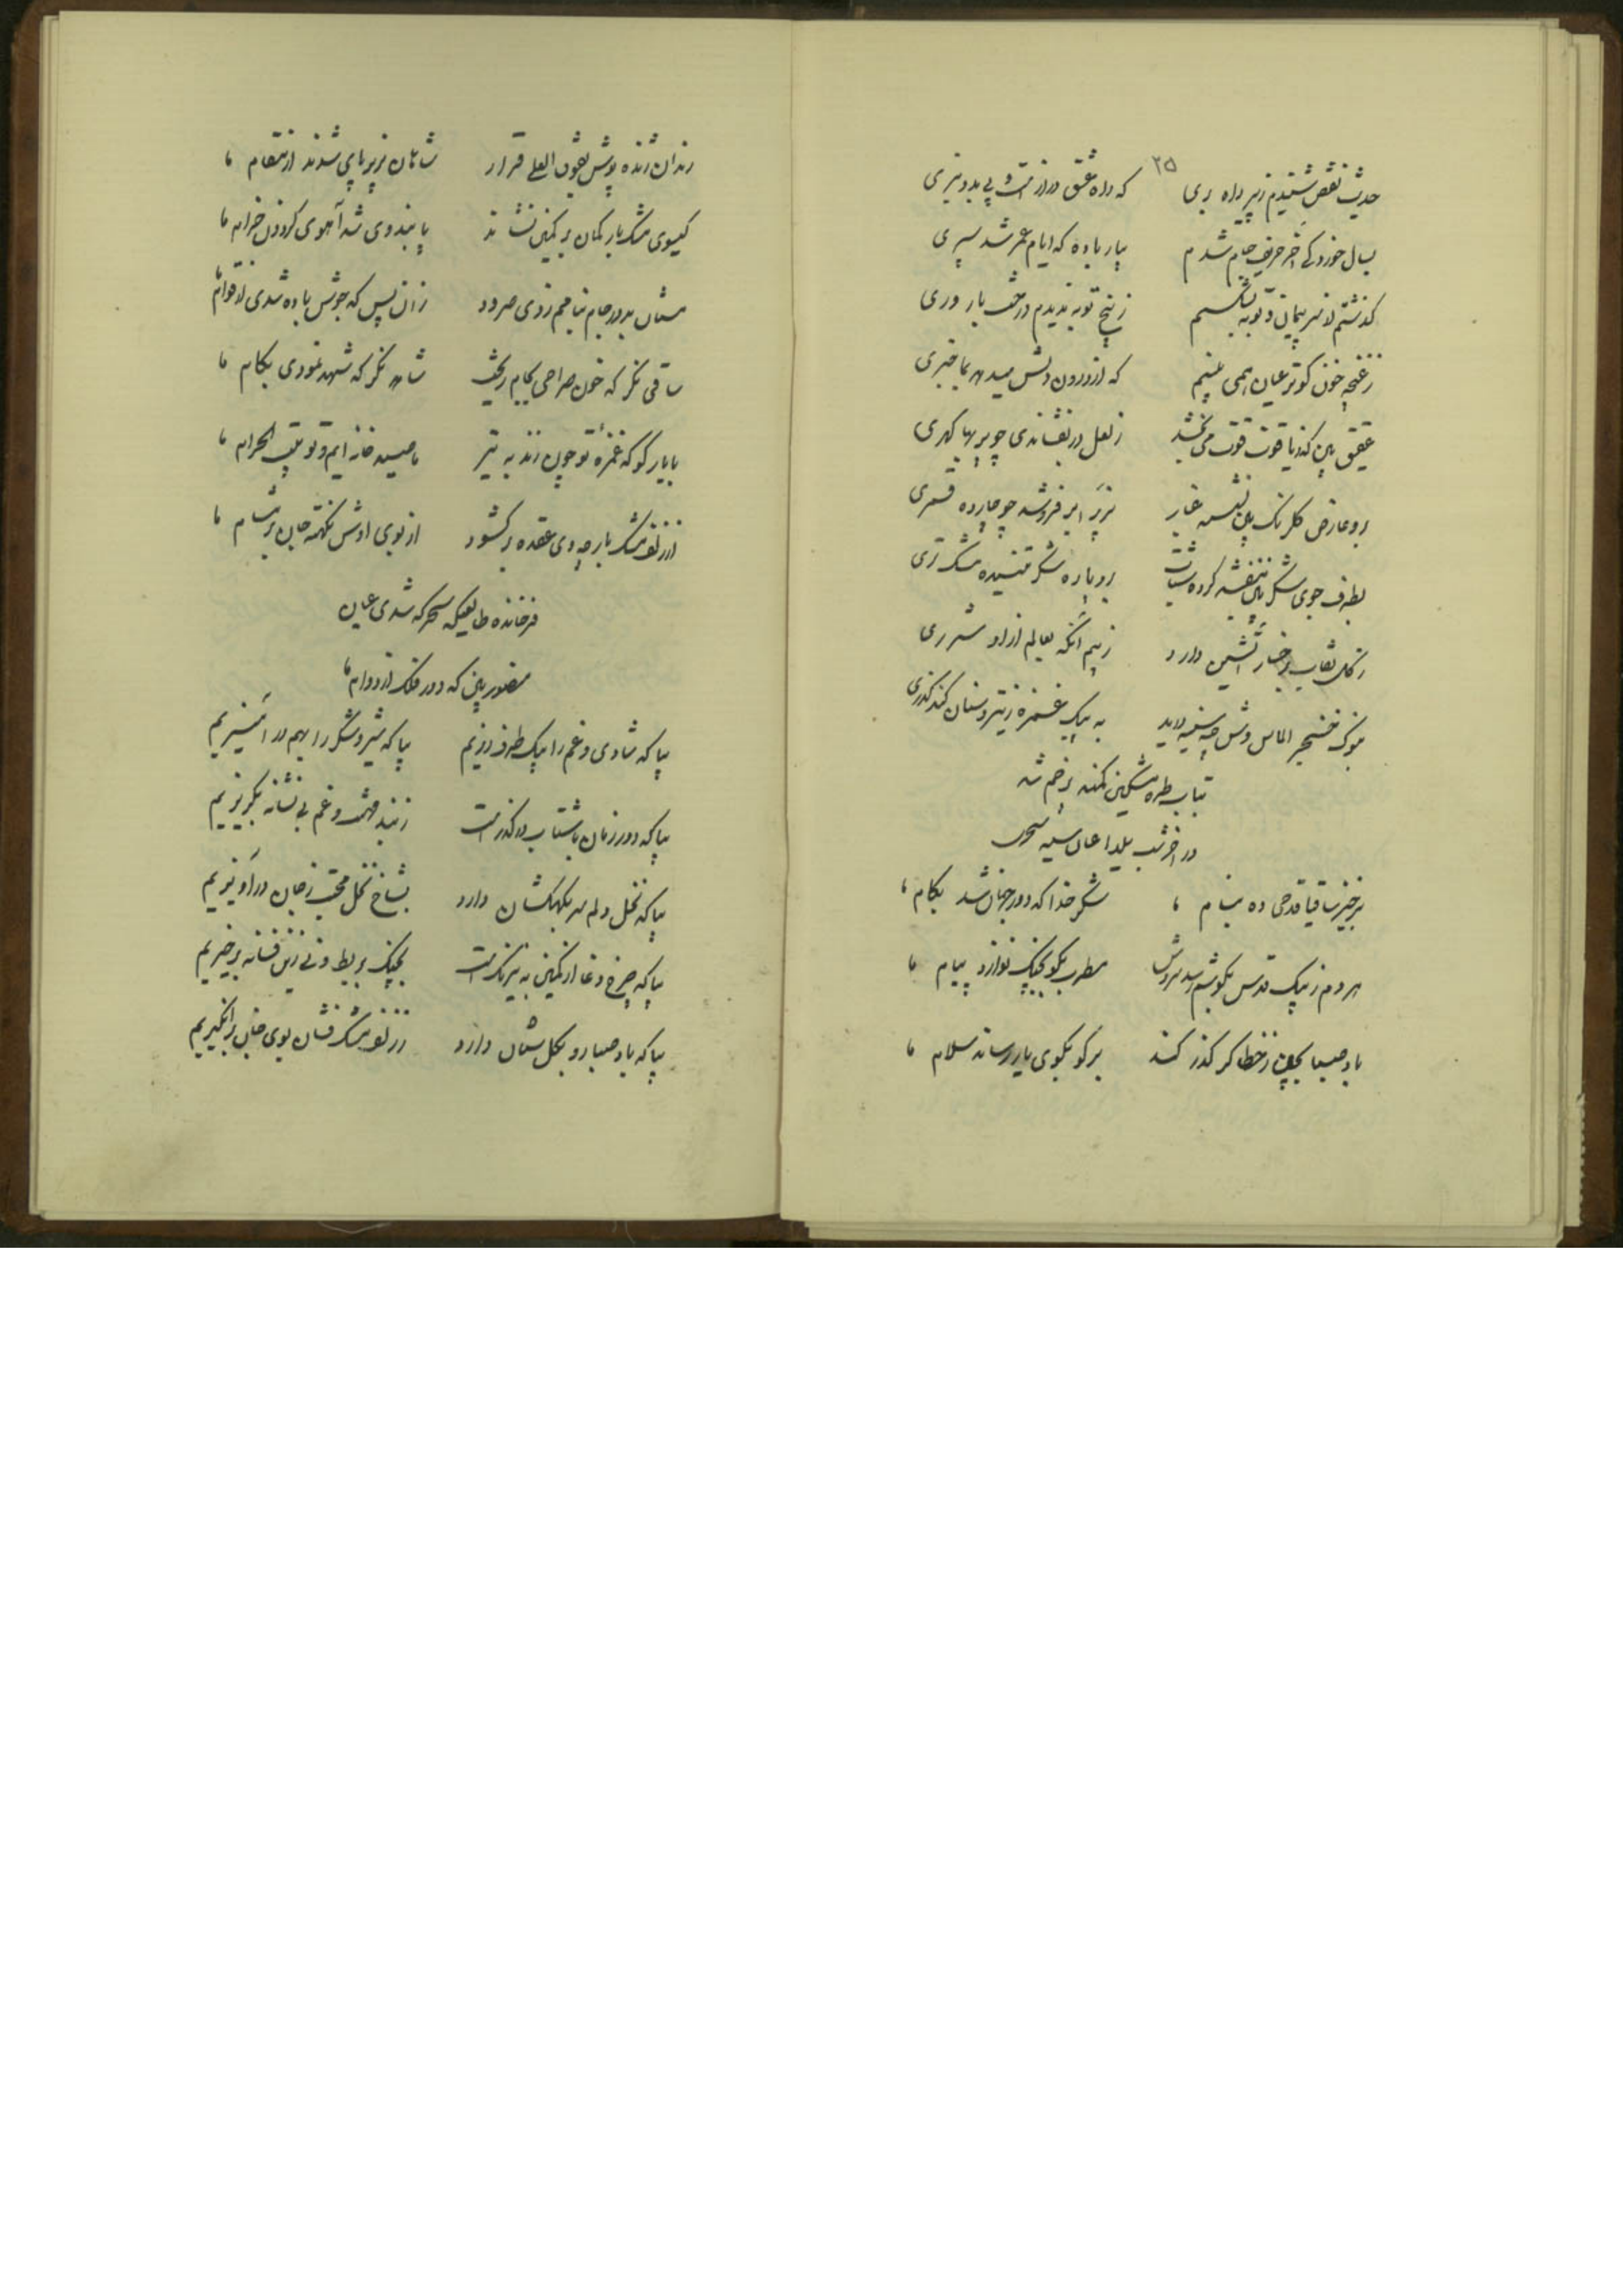 ۲۵
حدیث نغض شنیدم ز پیر راه بری که راه عشق دراز است و پی بدو نبری
بسال خورد کی آخر حریف جام شدم بیار باده که ایام عمر شد سپری
کذشتم از سر پیمان و توبه بشکستم ز بیخ توبه ندیدم درخت بار وری
ز غنچه خون کبوتر عیان همی بینم که از درون دلش میدهد بما خبری
عقیق بین کز یاقوت قوت می بخشد ز لعل در بفشاندی چو پر بها کهری
بزیر ابر فرو شد چو چارده قمری
بطرف جوی شکر بین بنفشه کرده
ز کل نقاب رخسار آتشین دارد ز بیم آنکه بعالم از او شرری
بنوک خنجر الماس وش به یک غمزه ز تیر و سنان کند کذری
بتاب طره مشکین کمند بر خم شد
در آخر شب یلدا عیان سحری
برخیز ساقیا قدحی ده بنام ما شکر خدا که دور جهان شد بکام ما
هر دم ز پیک قدس بکوشم رسد سروش مطرب بکو بچنک نوازد پیام ما
باد صبا بچین ز خطا کر کذر کند بر کو بکوی یار رساند سلام ما
رندان ژنده پوش بفوق العلی قرار شاهان بزیر پای شدند از مقام ما
کیسوی مشک بار کمان بر کمین نشاند پابند وی شد آهوی کردون خرام ما
مستان بدور جام بنا میم زدی سرود زان پس که جوش باده شدی از قوام ما
ساقی نکر که خون صراحی بجام ریخت شاهد نکر که شهد نمودی بکام ما
با یار کو که غمزه تو چون زند به تیر ما صید خانه ایم و تو بیت الحرام ما
از زلف مشک بار چو وی عقده بر کشود از بوی او نکهت جان بر مشام ما
فرخنده طالعی که سحر که شدی عیان
منصور بین که دور فلک از دوام ما
بیا که شادی و غم را بیک طرف ریزیم بیا که شیر و شکر را بهم در آمیزیم
بیا که دور زمان با شتاب در کذر است ز بند و غم بی نشانه بکریزیم
بیا که نخل دلم سر بکهکشان دارد بشاخ نخل محبت ز جان در آویزیم
بیا که چرخ دغا از کمین به نیرنک است بچنک و بربط و نی زین فسانه برخیزیم
بیا که باد صبا رو بکلستان دارد ز زلف مشک فشان بوی جان بر انکیزیم